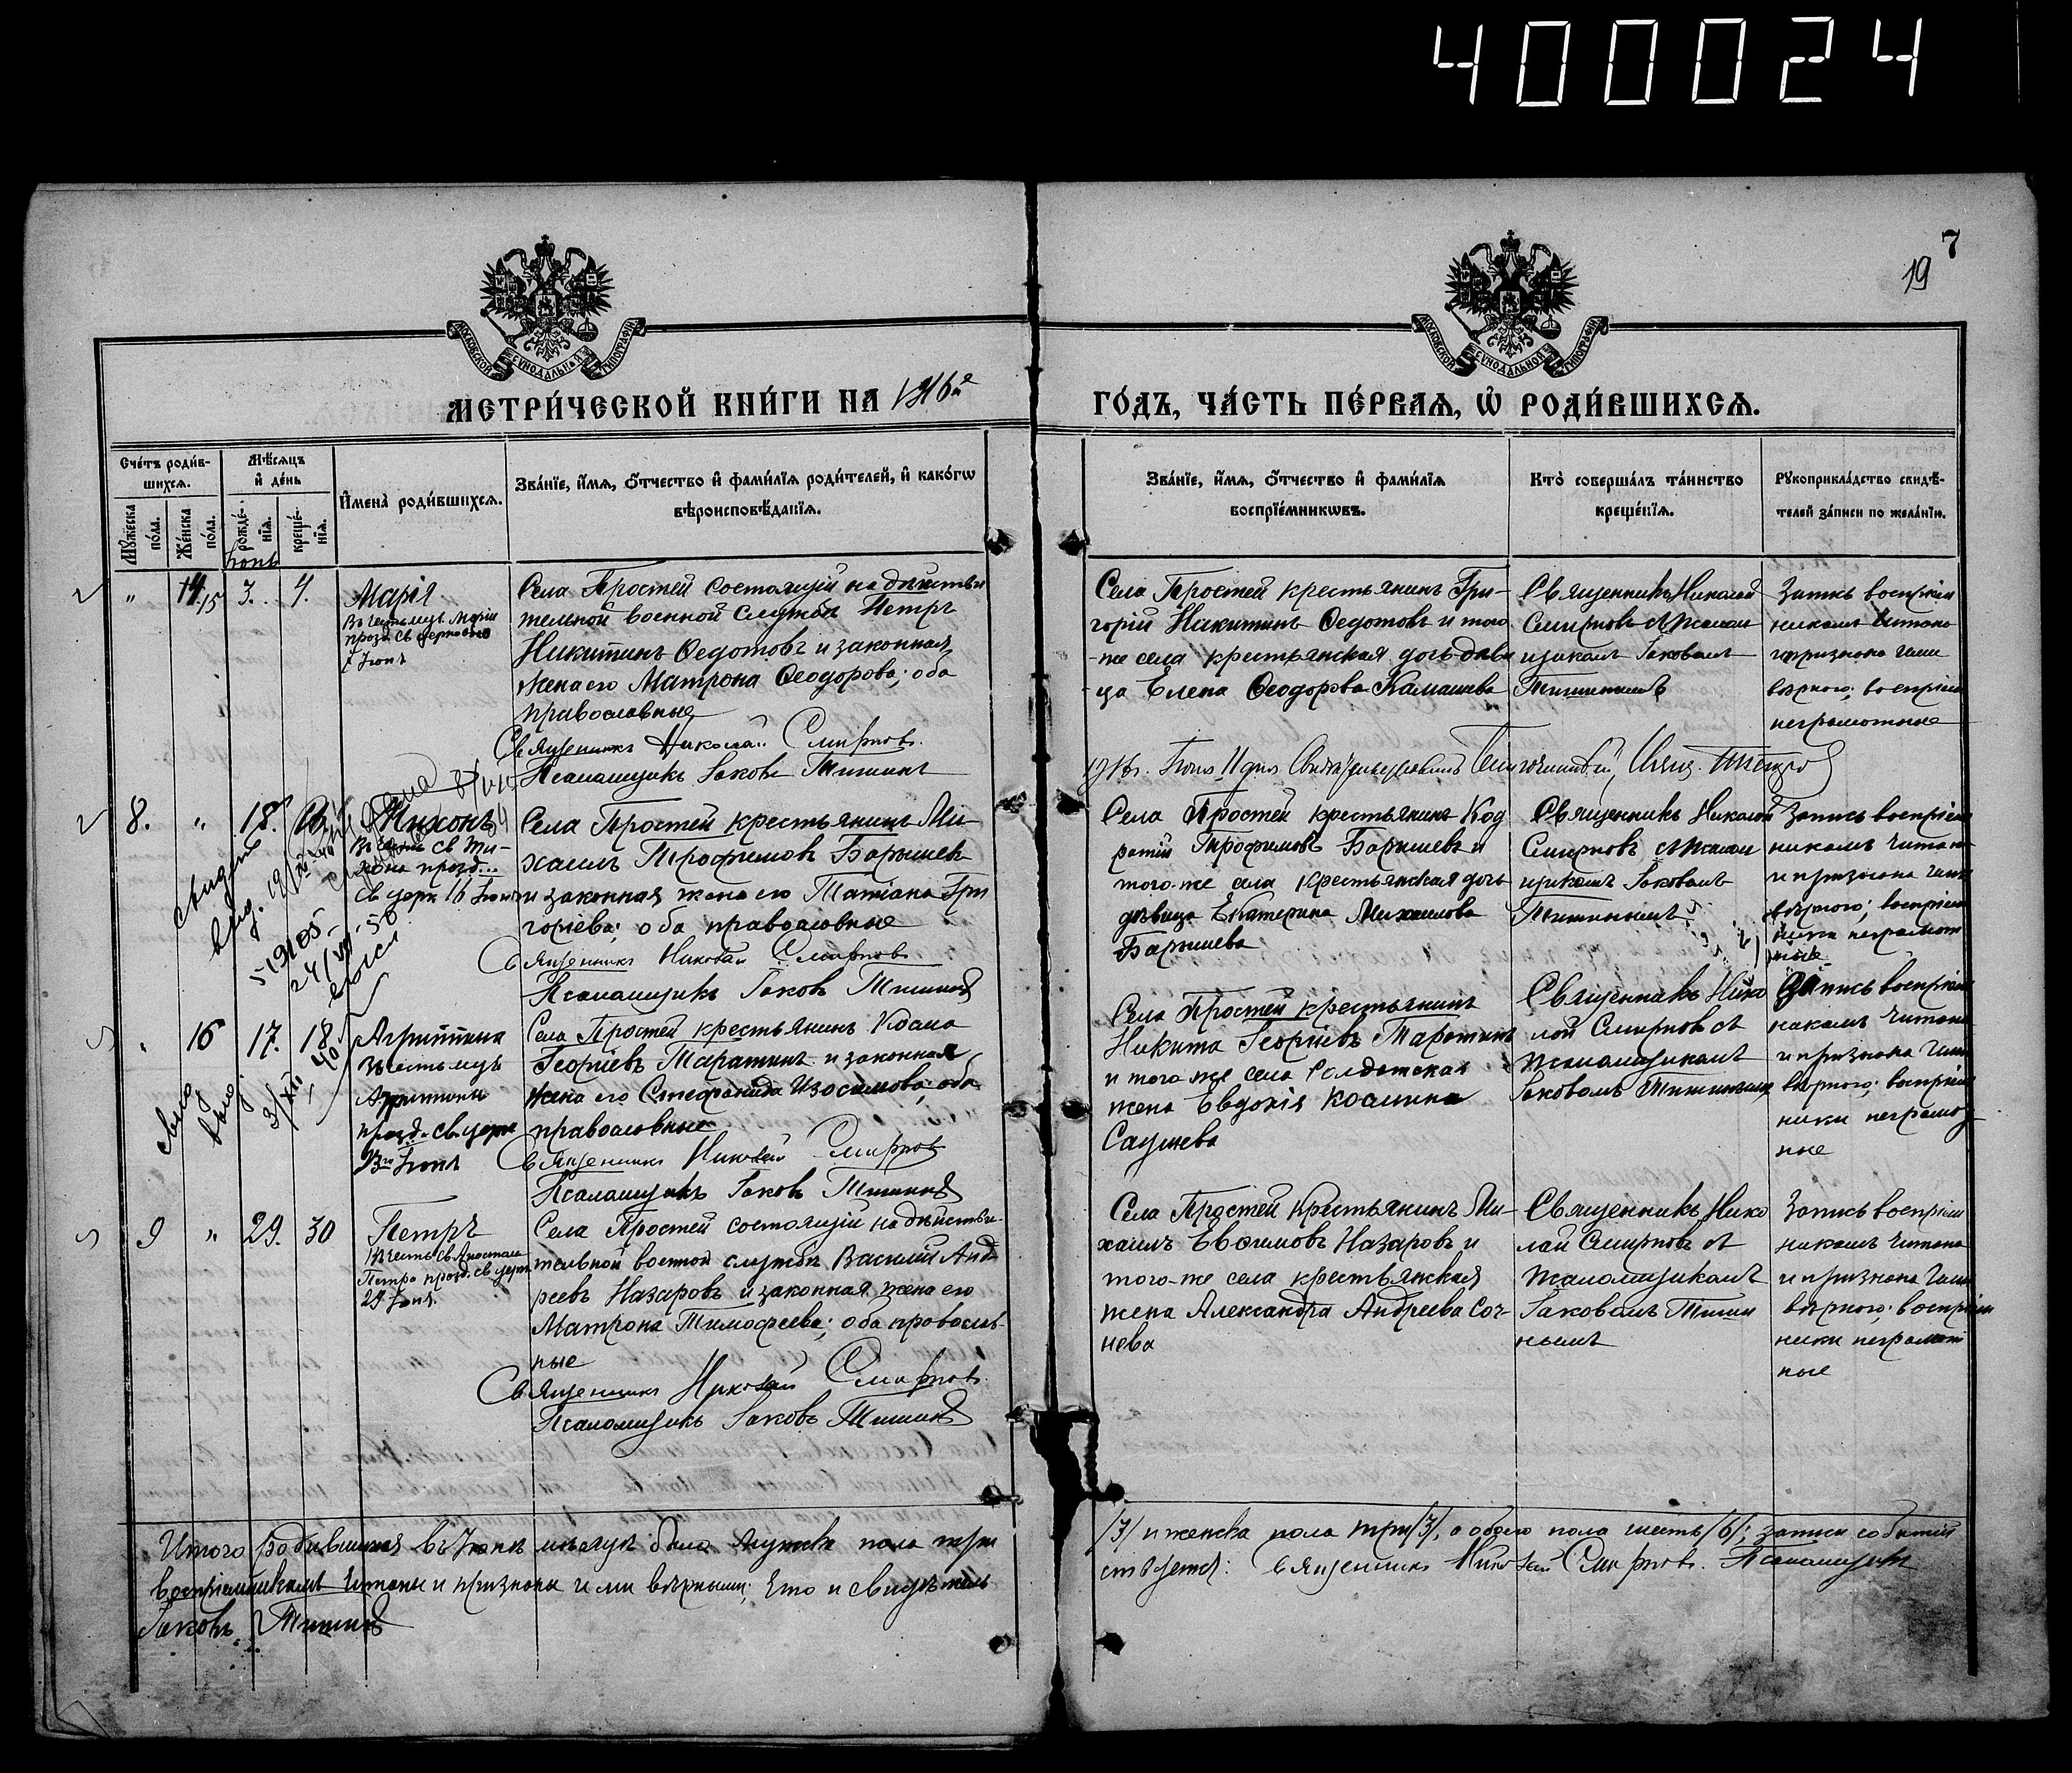 400024
7
19
МОСКОВСКОЙ СѴНОДАЛЬНОЙ ТИПОГРАФІИ.
МОСКОВСКОЙ СѴНОДАЛЬНОЙ ТИПОГРАФІИ.
МЕТРИ́ЧЕСКОЙ КНИ́ГИ НА 1916й
ГО́ДЪ, ЧА́СТЬ ПЕ́РВАѦ, Ѡ҆ РОДИ́ВШИХСѦ.
Сче́тъ роди́в-
шихсѧ.
Мѣ́сѧцъ
и҆ де́нь
Мꙋ́жеска
по́ла.
Же́нска
по́ла.
рожде́-
нїѧ.
креще́-
нїѧ.
И҆мена̀ роди́вшихсѧ.
Зва́нїе, и҆́мѧ, ѻ҆́тчество и҆ фами́лїѧ роди́телей, и҆ како́гѡ
вѣроисповѣ́данїѧ.
Зва́нїе, и҆́мѧ, ѻ҆́тчество и҆ фами́лїѧ
воспрїе́мникѡвъ.
Кто̀ соверша́лъ та́инство
креще́нїѧ.
Рꙋкоприкла́дство свидѣ́-
телей за́писи по жела́нїю.
Іюнь
" 15 3. 4.
Марія
Въ честь муц. Маріи
празд. св церковію
7 Іюня
Села Простей состоящій на дѣйстви
тельной военной службѣ Петръ
Никитинъ Ѳедотовъ и законная
жена его Матрона Ѳеодорова; оба
православные
Священникъ Николай Смирновъ.
Псаломщикъ Іаковъ Тишинъ
Села Простей крестьянинъ Гри-
горій Никитинъ Ѳедотовъ и того
-же села крестьянская дочь дѣви
ца Елена Ѳеодорова Камашева
Священникъ Николай
Смирновъ съ Псалом
щикомъ Іаковомъ
Тишинымъ
Запись воспріем
никамъ читана
и признана ими
вѣрною; воспріем
неграмотные
1916г. Іюня 11 дня
8. " 18.
Тихонъ
Въ честь св Ти-
хона празд...
св церк 16 Іюня
Села Простей крестьянинъ Ми-
хаилъ Трофимовъ Барышевъ
и законная жена его Татіана Гри
горіева; оба православные
Священникъ Николай Смирновъ
Псаломщикъ Іаковъ Тишинъ
Села Простей крестьянинъ Код
ратій Трофимовъ Барышевъ и
того-же села крестьянская дочь
дѣвица Екатерина Михаилова
Барышева
Священникъ Николай
Смирновъ съ Псалом
щикомъ Іаковомъ
Тишинымъ
Запись воспріем
никамъ читана
и признана ими
вѣрною; воспріем
ники неграмот
ные
выд.
519105-
24/VII-50
" 16 17. 18
Агриппина
въ честь муц
Агриппины
празд. св. церк
23го Іюня
Села Простей крестьянинъ Косма
Георгіевъ Таратинъ и законная
жена его Стефанида Изосимова; оба
православные
Священникъ Николай Смирновъ
Псаломщикъ Іаковъ Тишинъ
Села Простей крестьянинъ
Никита Георгіевъ Таратинъ
и того же села солдатская
жена Евдокія Космина
Саушева
Священникъ Нико
лай Смирновъ съ
Псаломщикомъ
Іаковомъ Тишинымъ
Запись воспріем
никамъ читана
и признана ими
вѣрною; воспріем
ники неграмот
ные
9 " 29. 30
Петръ
Въ честь св. Апостола
Петра празд. св церк
29 Іюня.
Села Простей состоящій на дѣйстви-
тельной военной службѣ Василій Анд
реевъ Назаровъ и законная жена его
Матрона Тимофеева; оба православ-
ные
Священникъ Николай Смирновъ.
Псаломщикъ Іаковъ Тишинъ
Села Простей крестьянинъ Ми-
хаилъ Евѳимовъ Назаровъ и
того-же села крестьянская
жена Александра Андреева Соч-
нева
Священникъ Нико
лай Смирновъ съ
Псаломщикомъ
Іаковомъ Тиши
нымъ
Запись воспріем
никамъ читана
и признана ими
вѣрною; воспріем
ники неграмот
ные
Итого родившихся въ Іюнѣ мѣсяцѣ было мужска пола три
/3/ и женска пола три /3/, а обоего пола шесть /6/; записи событій
воспріемникамъ читаны и признаны ими вѣрными; что и свидѣтель
ствуетъ: Священникъ Николай Смирновъ. Псаломщикъ
Іаковъ Тишинъ